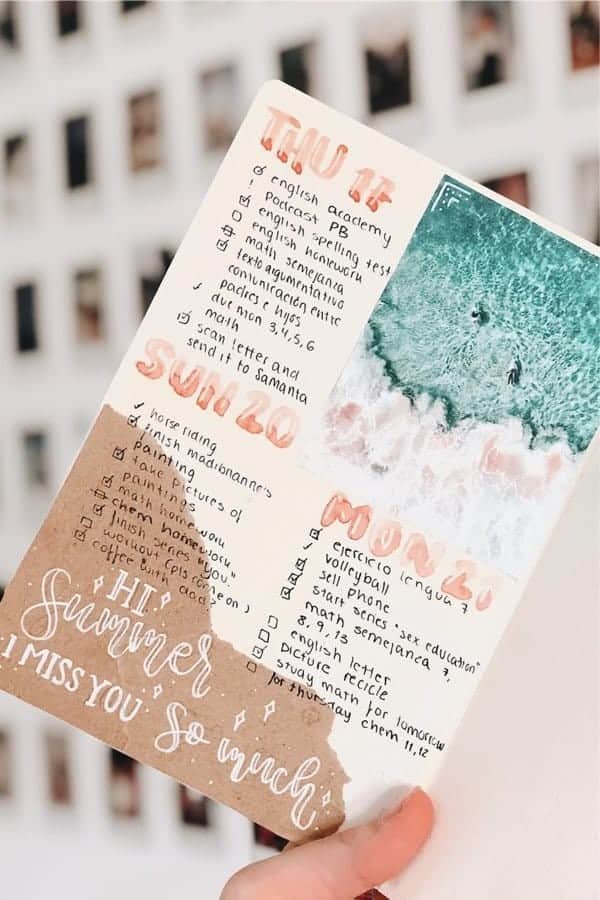 THU 17
english academy
podcast PB
english spelling test
english homework
math semejanza
texto argumentativo
comunicación entre
padres e hijos
due mon 3,4,5,6
math
scan letter and
send it to Samanta
SUN 20
horse riding
finish madibonanne's
painting
take pictures of
paintings
math homework
chem homework
finish series "you"
workout (pls come on)
coffee with dad?
HI
Summer
I MISS YOU
So much
MON 21
ejercicio lengua 7
volleyball
sell phone
start series "sex education"
math semejanza 7,
8, 9, 13
english letter
picture recicle
study math for tomorrow
for thursday chem 11,12